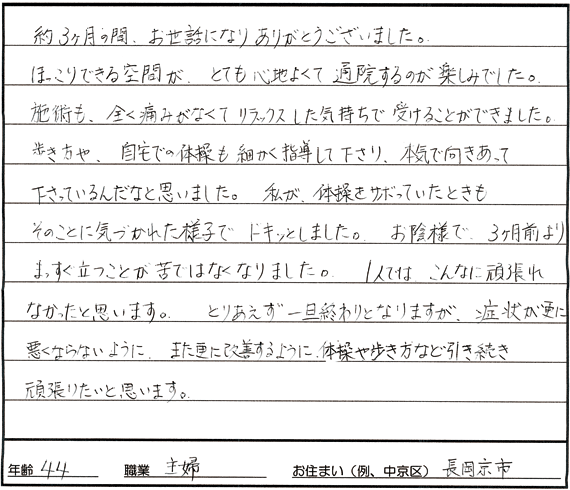 約3ヶ月の間、お世話になりありがとうございました。
ほっこりできる空間が、とても心地よくて通院するのが楽しみでした。
施術も、全く痛みがなくてリラックスした気持ちで受けることができました。
歩き方や、自宅での体操も細かく指導して下さり、本気で向きあって
下さっているんだなと思いました。私が、体操をサボっていたときも
そのことに気づかれた様子でドキッとしました。お陰様で、3ヶ月前より
まっすぐ立つことが苦ではなくなりました。1人では、こんなに頑張れ
なかったと思います。とりあえず一旦終わりとなりますが、症状が更に
悪くならないように、また更に改善するように、体操や歩き方など引き続き
頑張りたいと思います。
年齢 44 職業 主婦 お住まい（例、中京区） 長岡京市